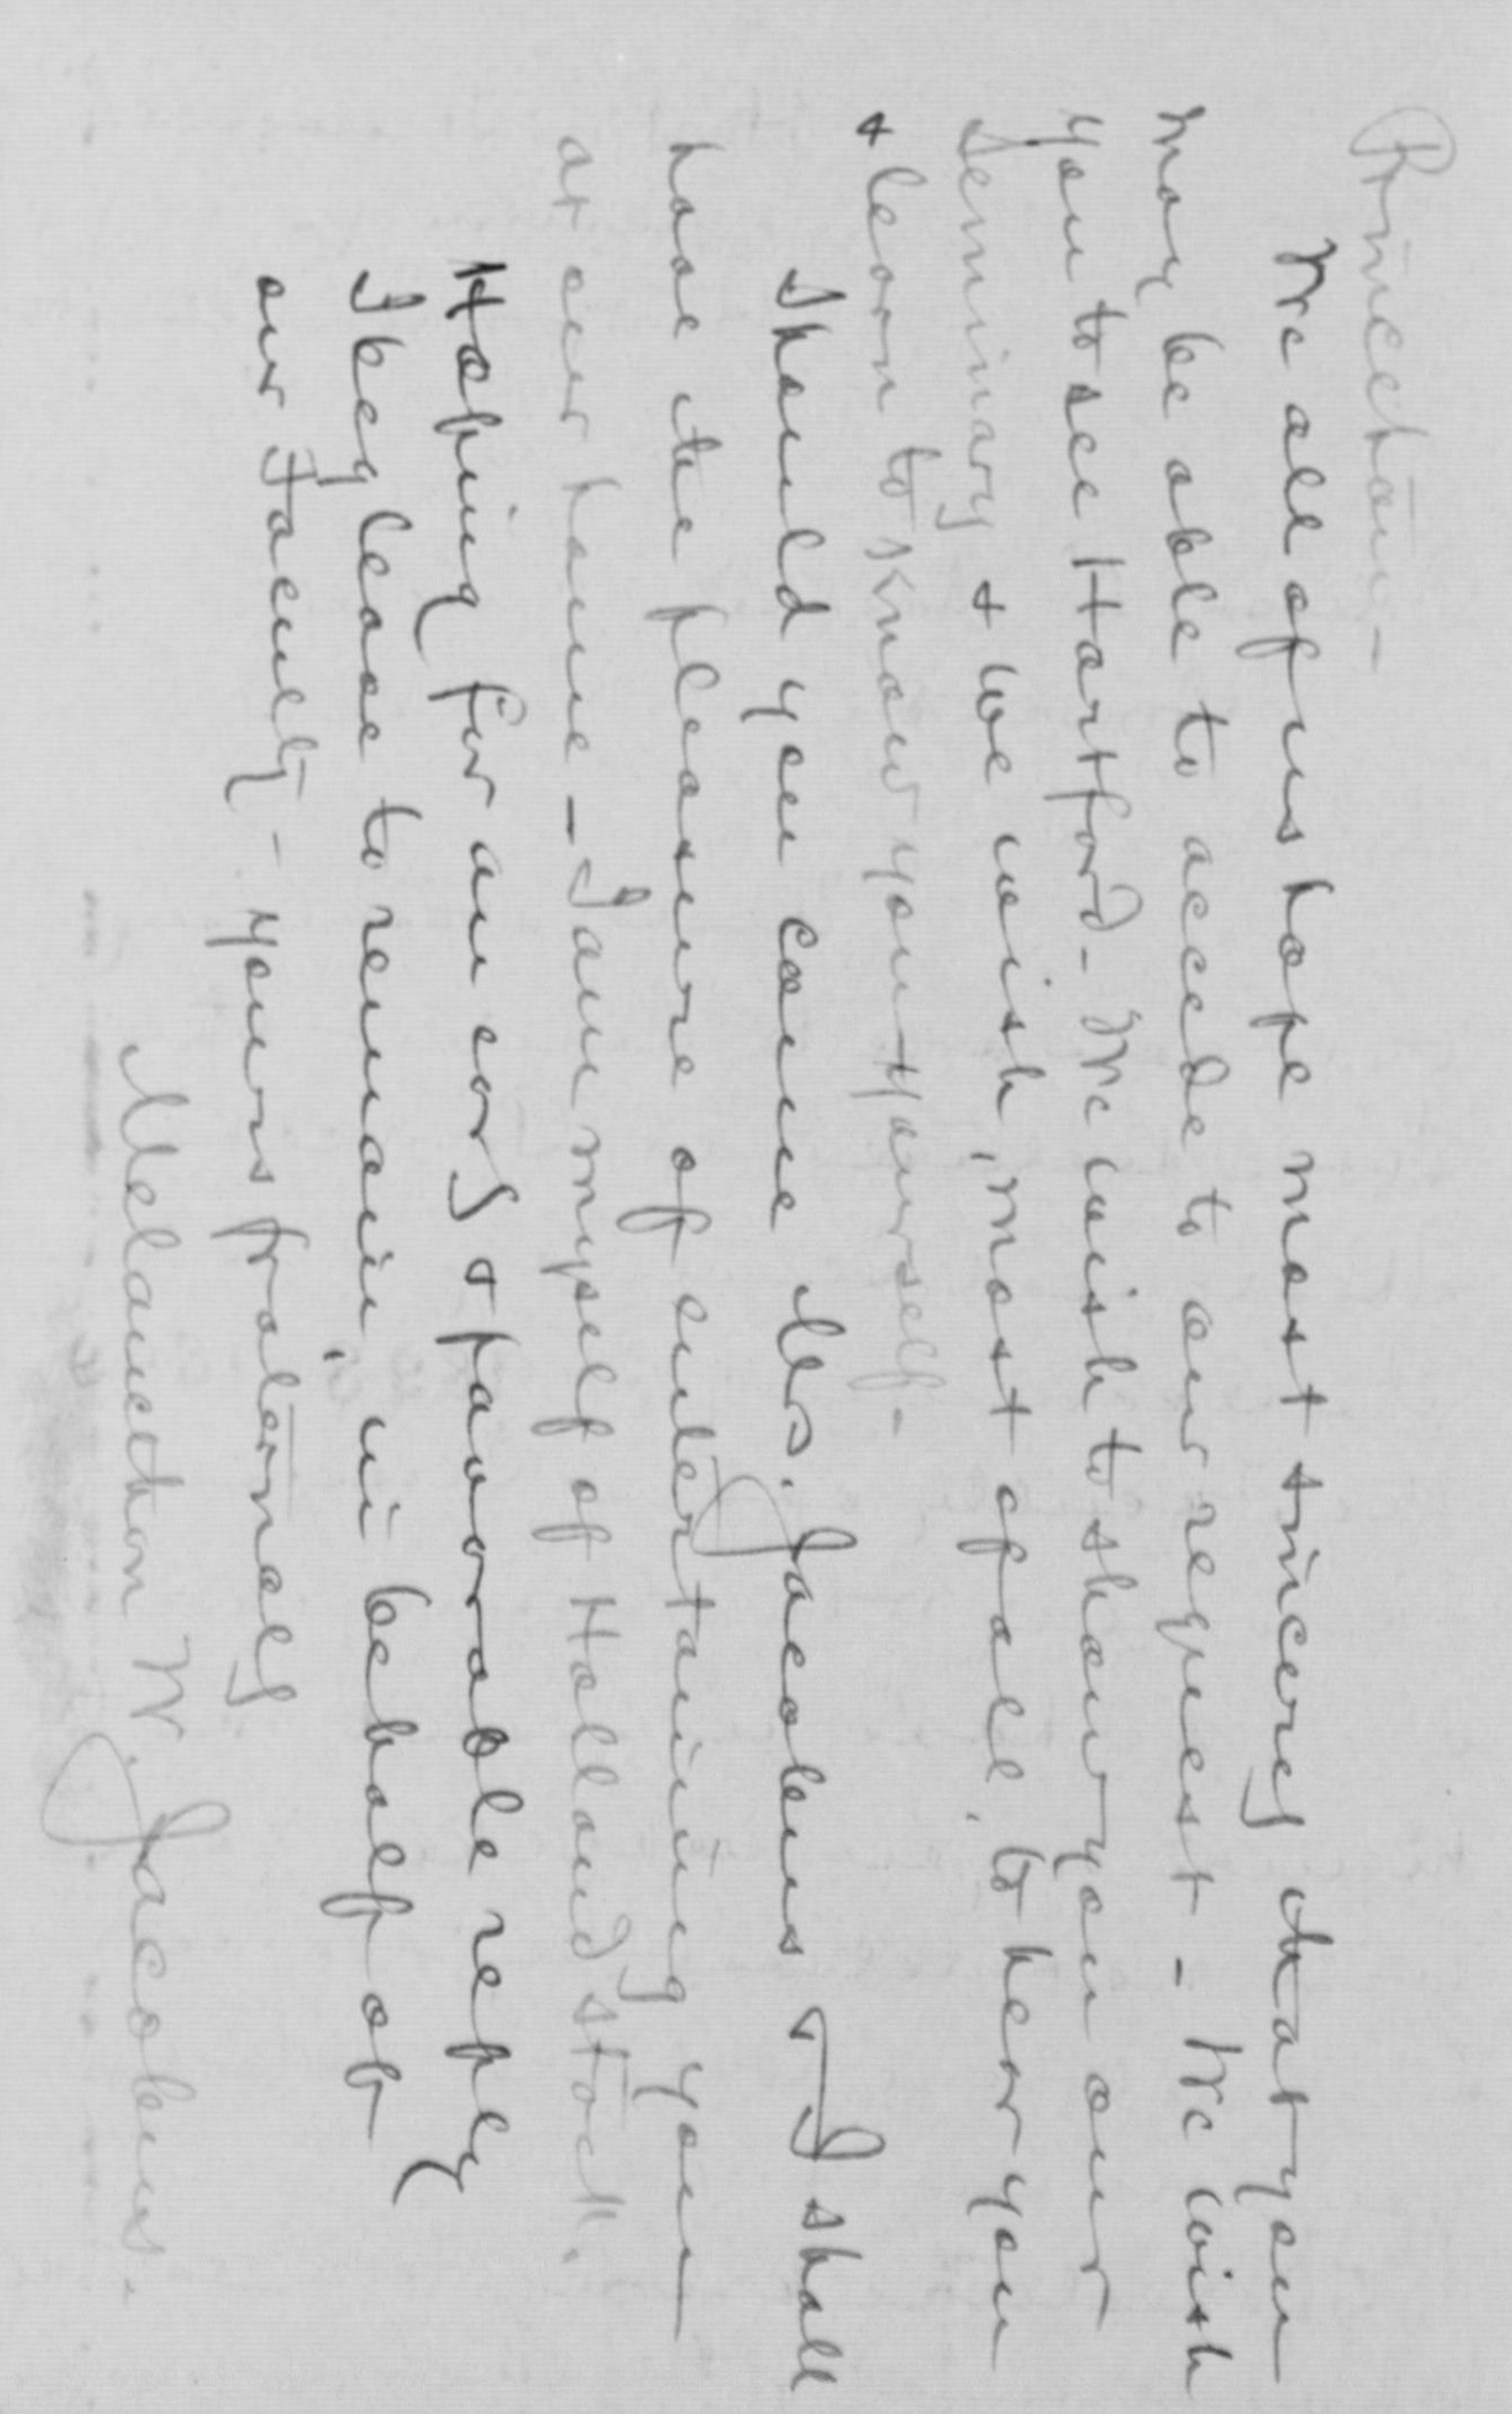 Princeton -
We all of us hope most sincerely that you
may be able to accede to our request - We wish
you to see Hartford - We wish to show you our
Seminary + we wish, most of all, to hear you
+ learn to know you yourself -
Should you come Mrs. Jacobus + I shall
have the pleasure of entertaining you
at our home - I am myself of Holland stock.
Hoping for an early + favorable reply
I beg leave to remain, in behalf of
our Faculty - yours fraternally
Melancthon W. Jacobus.